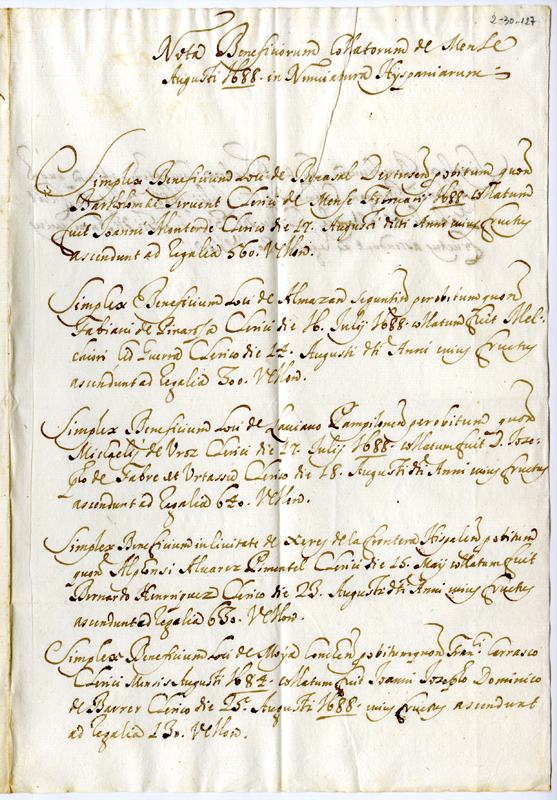 2-30-127
Nota Beneficiorum Collatorum de Mense
Augusti 1688. in Nunciatura Hyspaniarum
Simplex Beneficium Loci de Dertusen p obitum quon
Bartholomæi Servent Clerici de Mense Februarij 1688. collatum
fuit Joanni Monterde Clerico die 17. Augusti dicti Anni cuius fructus
ascendunt ad Regalia 360. Vellon.
Simplex Beneficium Loci de Almazan Seguntin per obitum quon
Fabiani de Clerici die 16. Julij 1688. collatum fuit Mel-
chiori Guerra Clerico die 14. Augusti dti Anni cuius fructus
ascendunt ad Regalia 300. Vellon.
Simplex Beneficium Loci de Laviano Pampilonen per obitum quon
Michaelis de Uroz Clerici die 17. Julij 1688. collatum fuit D. Joze-
pho de Fabre et Urtassu Clerico die 18. Augusti dti Anni cuius fructus
ascendunt ad Regalia 640. Vellon.
Simplex Beneficium in Civitate de Xeres de la frontera Hispalen p obitum
quon Alphonsi Alvarez Pimentel Clerici die 15. Maij collatum fuit
Bernardo Henrriquez Clerico die 23. Augusti dti Anni cuius fructus
ascendunt ad Regalia 630. Vellon.
Simplex Beneficium Loci de Moya Conchen p obitum quon Franci Carrasco
Clerici Mensis Augusti 1684. collatum fuit Joanni Jozepho Dominico
de Barrer Clerico die 25. Augusti 1688. cuius fructus ascendunt
ad Regalia Vellon.